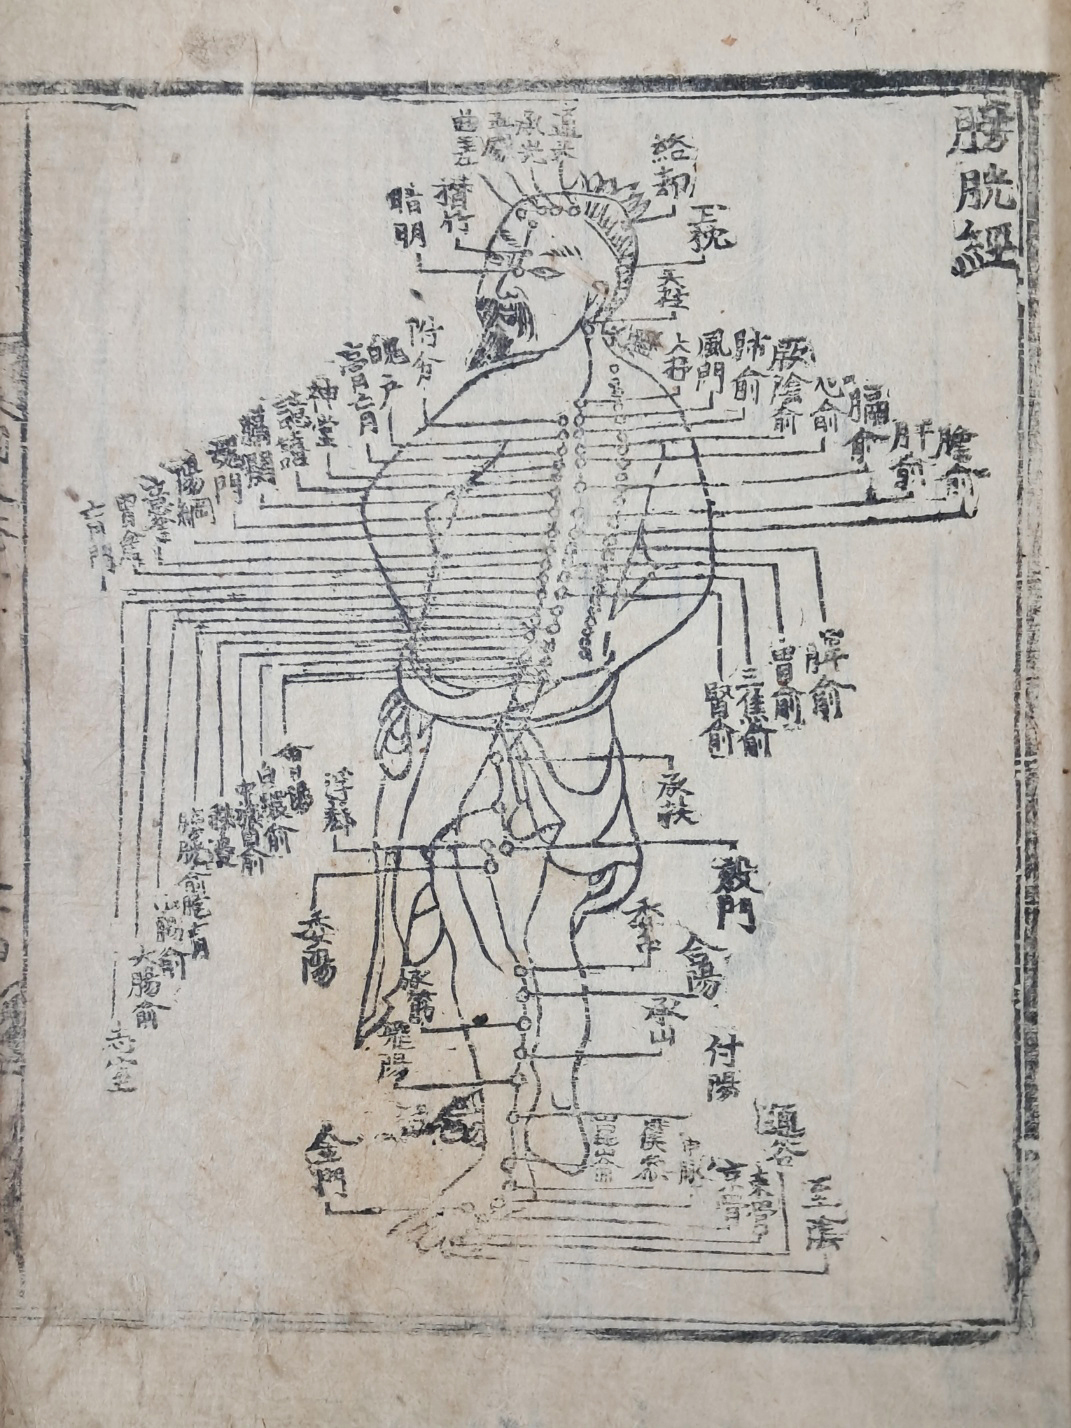 膀胱經
通天
承光
五處
曲差
絡却
玉枕
攅竹
暗明
天柱
大杼
風門
肺俞
厥陰俞
心俞
膈俞
肝俞
膽俞
脾俞
胃俞
三焦俞
腎俞
附分
魄户
膏肓
神堂
譩譆
膈関
魂門
陽綱
意舍
胃倉
肓門
志室
大腸俞
小腸俞
膀胱俞
胞肓
秩邊
中膂俞
白環俞
會陽
浮郄
承扶
殷門
委陽
委中
合陽
承筋
承山
飛陽
付陽
崑崙
僕參
申脉
金門
京骨
束骨
通谷
至陰